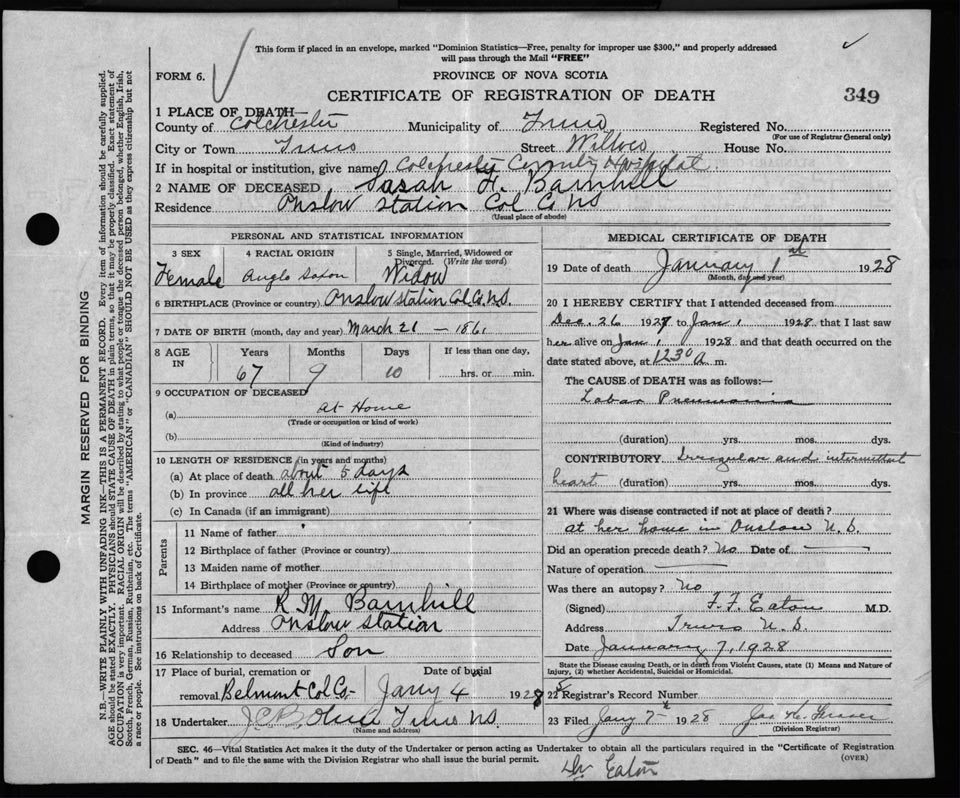 This form if placed in an envelope, marked "Dominion Statistics—Free, penalty for improper use $300," and properly addressed
will pass through the Mail "FREE"
FORM 6.
PROVINCE OF NOVA SCOTIA
CERTIFICATE OF REGISTRATION OF DEATH
349
1 PLACE OF DEATH—
County of Colchester Municipality of Truro Registered No.
(For use of Registrar General only)
City or Town Truro Street Willow House No.
If in hospital or institution, give name Colchester County Hospital.
2 NAME OF DECEASED Sarah H. Barnhill
Residence Onslow Station Col Co NS
(Usual place of abode)
PERSONAL AND STATISTICAL INFORMATION
3 SEX 4 RACIAL ORIGIN 5 Single, Married, Widowed or Divorced. (Write the word)
Female Anglo Saxon Widow
6 BIRTHPLACE (Province or country) Onslow station Col. Co. N.S.
7 DATE OF BIRTH (month, day and year) March 21 — 1861
8 AGE IN Years Months Days If less than one day,
67 9 10 hrs. or min.
9 OCCUPATION OF DECEASED
(a) At Home
(Trade or occupation or kind of work)
(b)
(Kind of industry)
10 LENGTH OF RESIDENCE (in years and months)
(a) At place of death about 5 days
(b) In province all her life
(c) In Canada (if an immigrant)
Parents
11 Name of father
12 Birthplace of father (Province or country)
13 Maiden name of mother
14 Birthplace of mother (Province or country)
15 Informant's name R. M. Barnhill
Address Onslow Station
16 Relationship to deceased Son
17 Place of burial, cremation or Date of burial
removal Belmont Col Co- Jany 4 1928
18 Undertaker Truro NS
(Name and address)
MEDICAL CERTIFICATE OF DEATH
19 Date of death January 1st 1928
(Month, day and year)
20 I HEREBY CERTIFY that I attended deceased from
Dec. 26 1927 to Jan 1 1928 that I last saw
her alive on Jan 1 1928 and that death occurred on the
date stated above, at 12 30 A m.
The CAUSE OF DEATH was as follows:—
Lobar Pneumonia
(duration) yrs. mos. dys.
CONTRIBUTORY Irregular and intermittent
heart (duration) yrs. mos. dys.
21 Where was disease contracted if not at place of death?
at her home in Onslow N.S.
Did an operation precede death? No Date of
Nature of operation
Was there an autopsy? No
(Signed) F. F. Eaton M.D.
Address Truro N.S.
Date January 7, 1928
State the Disease causing Death, or in death from Violent Causes, state (1) Means and Nature of
Injury, (2) whether Accidental, Suicidal or Homicidal.
22 Registrar's Record Number
23 Filed Jany 7th 1928
(Division Registrar)
SEC. 46—Vital Statistics Act makes it the duty of the Undertaker or person acting as Undertaker to obtain all the particulars required in the "Certificate of Registration
of Death" and to file the same with the Division Registrar who shall issue the burial permit. (OVER)
Dr Eaton
MARGIN RESERVED FOR BINDING
N.B.—WRITE PLAINLY WITH UNFADING INK—THIS IS A PERMANENT RECORD. Every item of information should be carefully supplied.
AGE should be stated EXACTLY. PHYSICIANS should STATE CAUSE OF DEATH in plain terms, so that it may be properly classified. Exact statement of
OCCUPATION is very important. RACIAL ORIGIN will be described by stating to what people or tongue the deceased person belonged, whether English, Irish,
Scotch, French, German, Russian, Ruthenian, etc. The terms "AMERICAN" or "CANADIAN" SHOULD NOT BE USED as they express citizenship but not
a race or people. See instructions on back of Certificate.